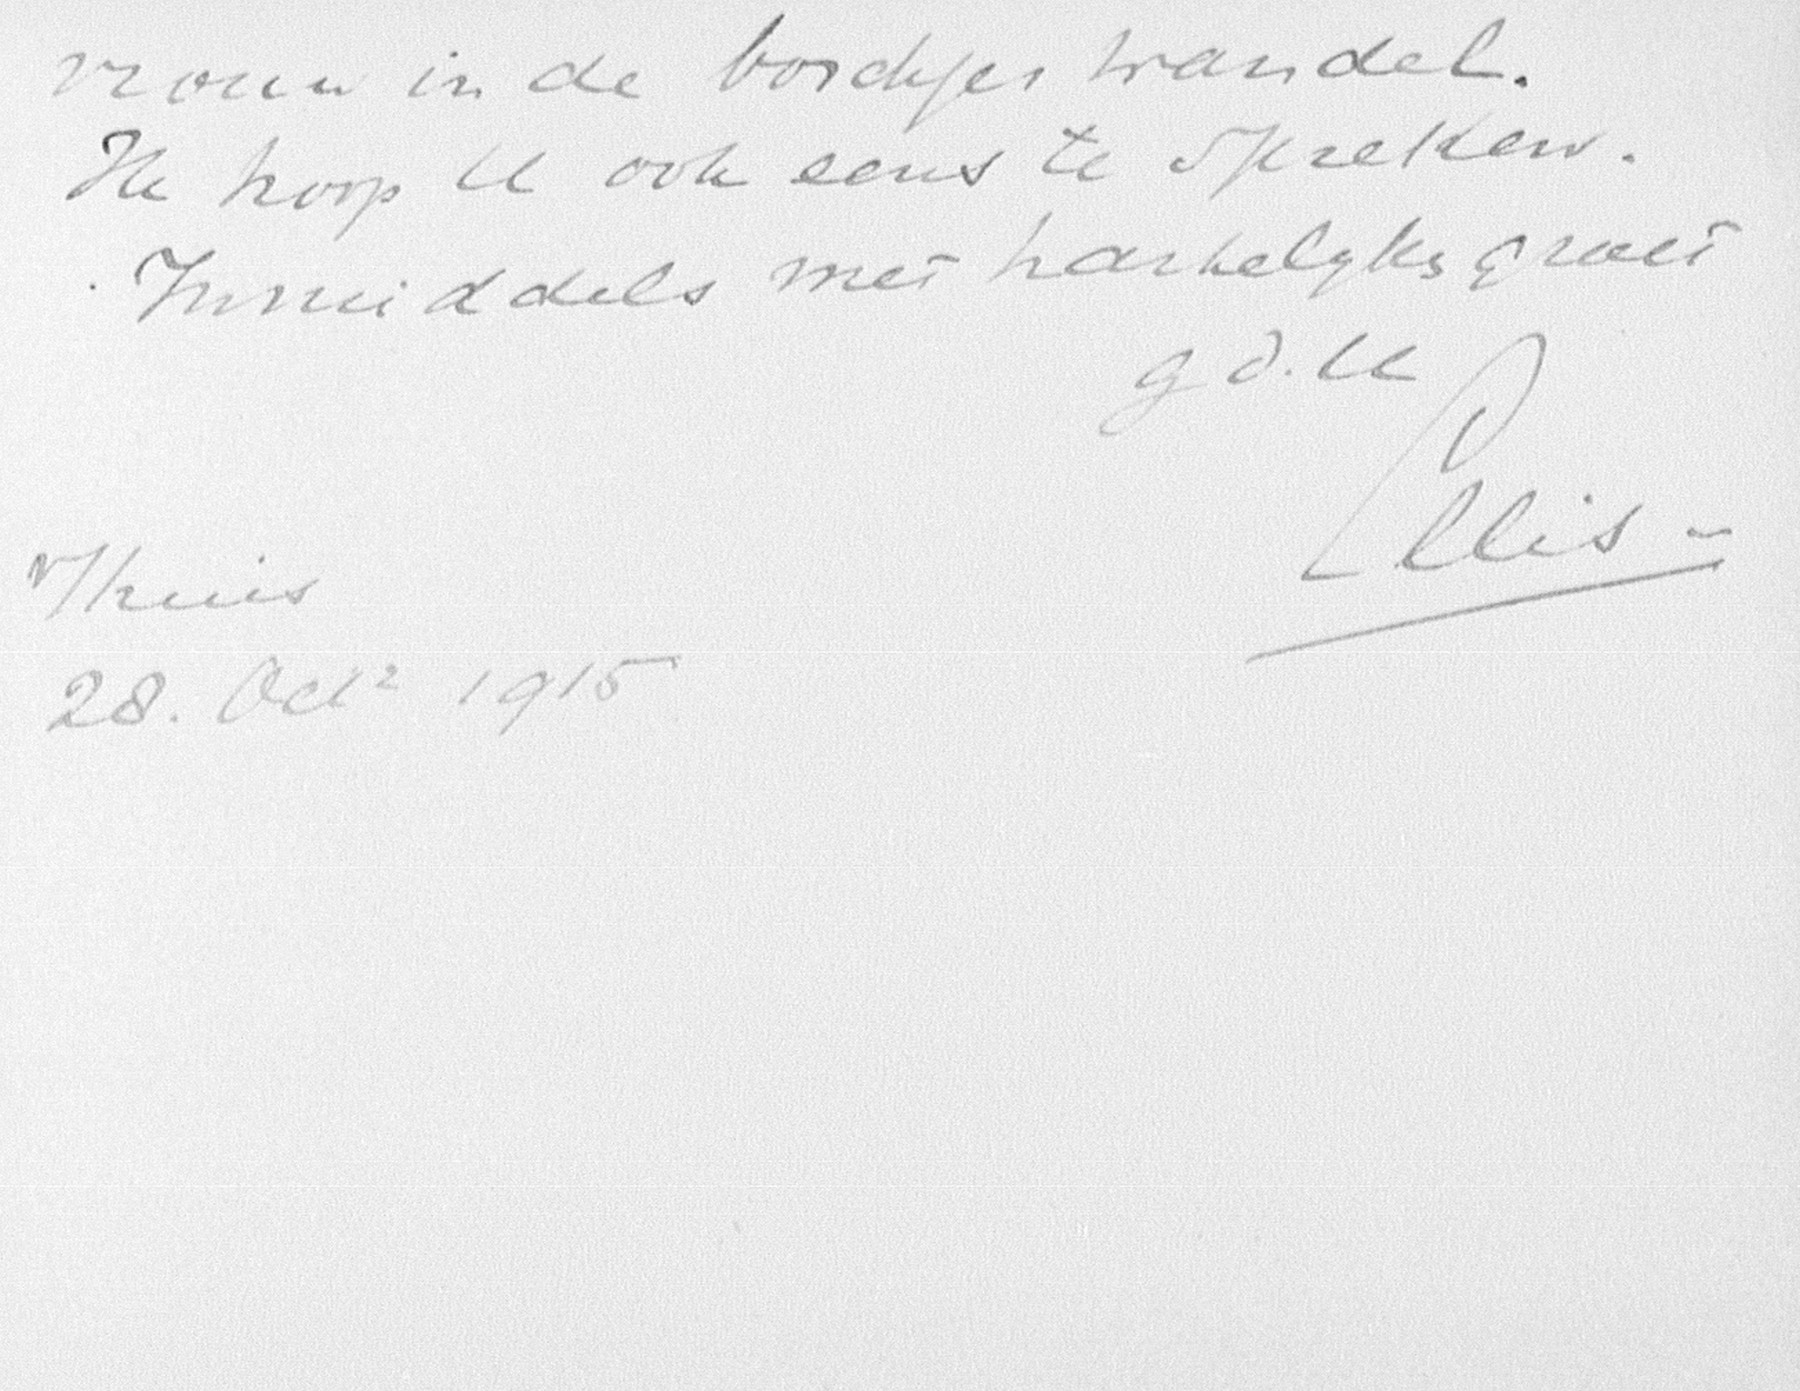 vrouw in de bordjes handel.
Ik hoop U ook eens te spreken.
Inmiddels met hartelyke groet
g d. U
Ellis -
Thuis
28. Oct² 1915